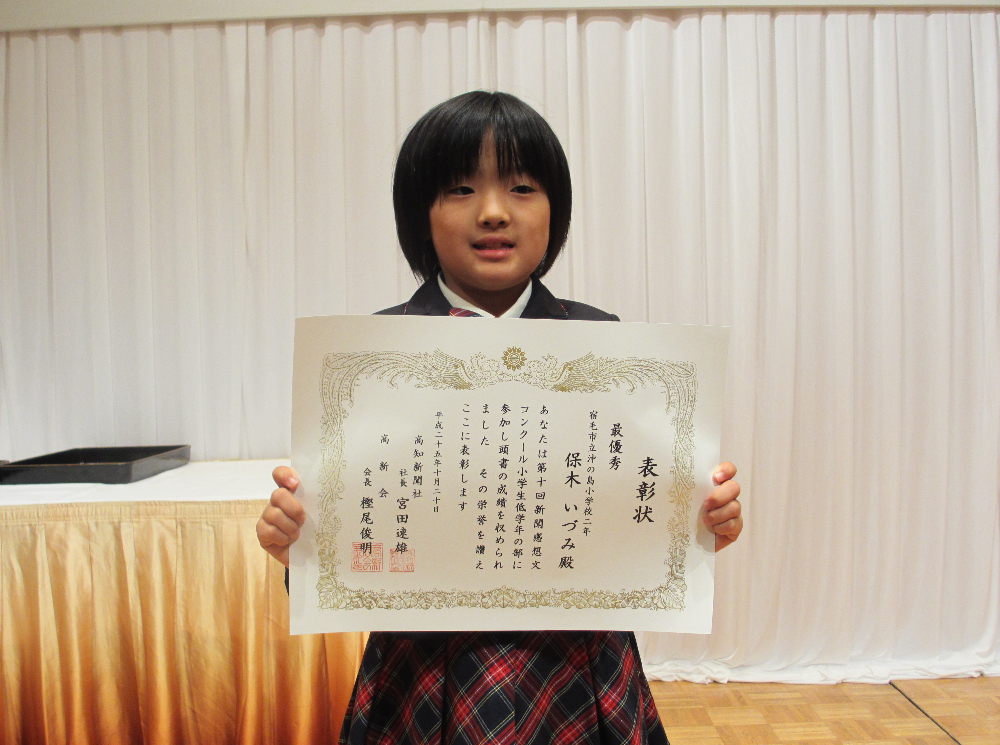 表彰状
最優秀
宿毛市立沖の島小学校二年
保木 いづみ殿
あなたは第十回新聞感想文
コンクール小学生低学年の部に
参加し頭書の成績を収められ
ました その栄誉を讃え
ここに表彰します
平成二十五年十月二十日
高知新聞社
社長 宮田速雄
高新会
会長 樫尾俊明